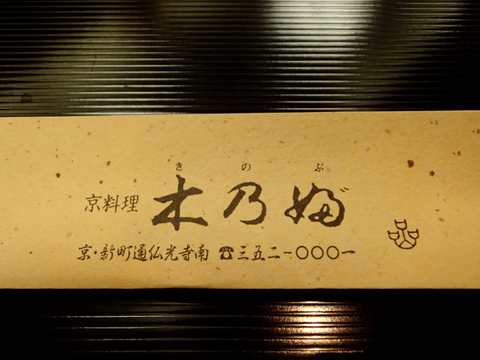 きのぶ
京料理 木乃婦
京・新町通仏光寺南 ☎三五二-〇〇〇一